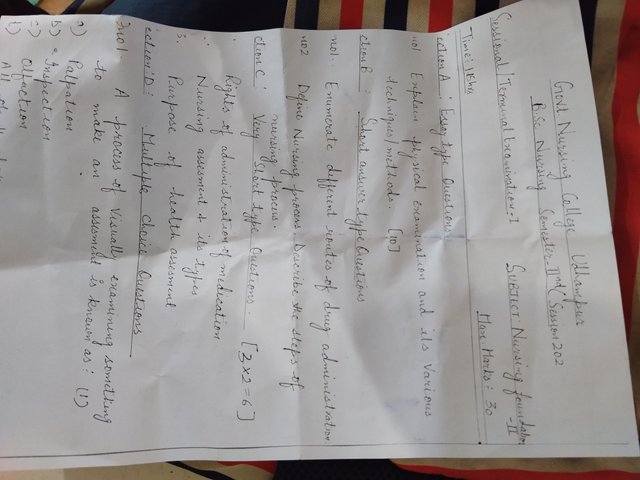 Govt Nursing College Udhampur
B.Sc. Nursing Semester-IInd, Session 202
Sessional/Terminal Examination-I
SUBJECT Nursing foundation
-II
Time: 1 Hrs
Max Marks: 30
ection A: Essay type Questions
no1 Explain physical examination and its various
techniques/methods. [10]
ction B: Short answer type Questions
no1. Enumerate different routes of drug administration
no2 Define Nursing process. Describe the steps of
nursing process.
ction C: Very Short type Questions. [3×2=6]
Rights of administration of medication
Nursing assesment & its types
3. Purpose of health assesment
ection: D: Multiple Choice Questions
no1. A process of visually examining something
to make an assesment is known as: (1)
a) Palpation
b) Inspection
c) Olfaction